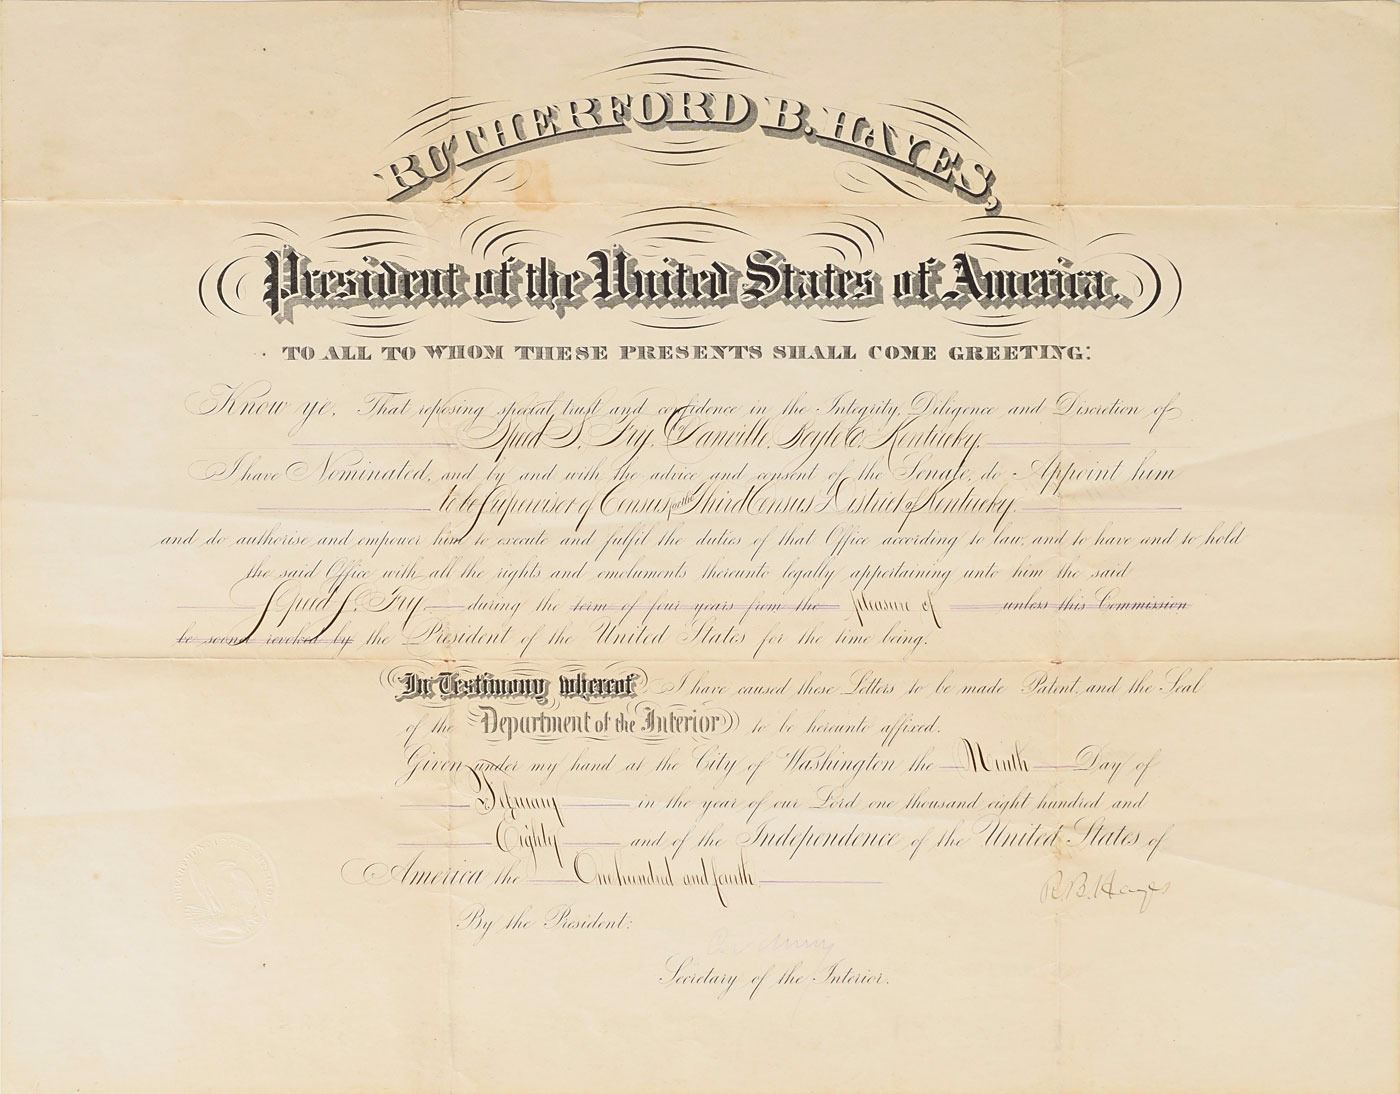 RUTHERFORD B. HAYES,
President of the United States of America.
TO ALL TO WHOM THESE PRESENTS SHALL COME GREETING:
Know ye, That reposing special trust and confidence in the Integrity, Diligence and Discretion of
Speed S. Fry, of Danville, Boyle Co. Kentucky,
I have Nominated, and by and with the advice and consent of the Senate, do Appoint him
to be Supervisor of Census for the Third Census District of Kentucky.
and do authorise and empower him to execute and fulfil the duties of that Office according to law, and to have and to hold
the said Office with all the rights and emoluments thereunto legally appertaining unto him the said
Speed S. Fry, during the term of four years from the pleasure of unless this Commission
be sooner revoked by the President of the United States for the time being.
In Testimony whereof I have caused these Letters to be made Patent, and the Seal
of the Department of the Interior to be hereunto affixed.
Given under my hand at the City of Washington the Ninth Day of
February in the year of our Lord one thousand eight hundred and
Eighty and of the Independence of the United States of
America the One hundred and fourth.
R. B. Hayes
By the President:
Secretary of the Interior.